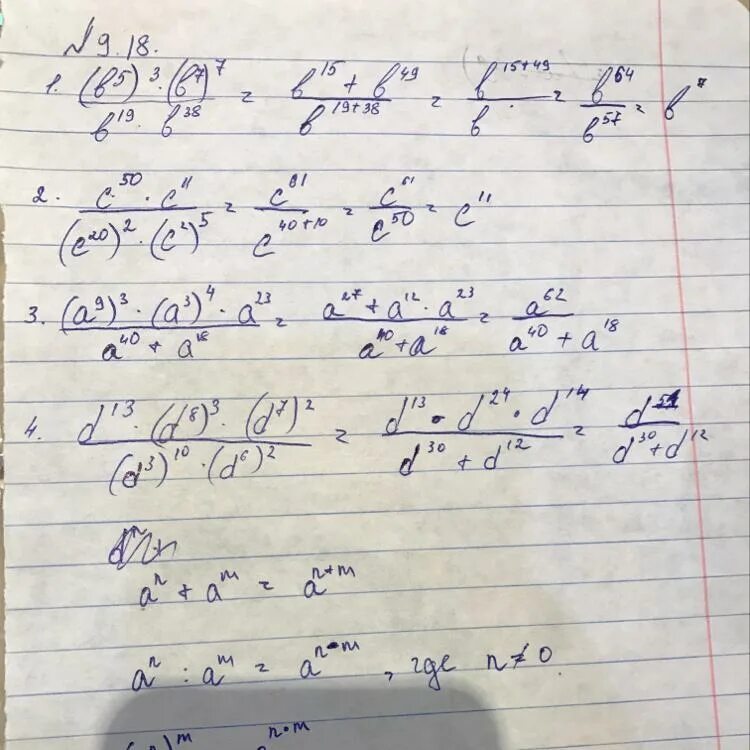 №9.18.
1. (b⁵)³·(b⁷)⁷ / b¹⁹·b³⁸ = b¹⁵ + b⁴⁹ / b¹⁹⁺³⁸ = b¹⁵⁺⁴⁹ / b = b⁶⁴ / b⁵⁷ = b⁷
2. c⁵⁰·c¹¹ / (c²⁰)²·(c²)⁵ = c⁶¹ / c⁴⁰⁺¹⁰ = c⁶¹ / c⁵⁰ = c¹¹
3. (a⁹)³·(a³)⁴·a²³ / a⁴⁰ + a¹⁸ = a²⁷ + a¹²·a²³ / a⁴⁰ + a¹⁸ = a⁶² / a⁴⁰ + a¹⁸
4. d¹³·(d⁸)³·(d⁷)² / (d³)¹⁰·(d⁶)² = d¹³·d²⁴·d¹⁴ / d³⁰ + d¹² = d⁵¹ / d³⁰ + d¹²
aⁿ + aᵐ = aⁿ⁺ᵐ
aⁿ : aᵐ = aⁿ⁻ᵐ, где n≠0